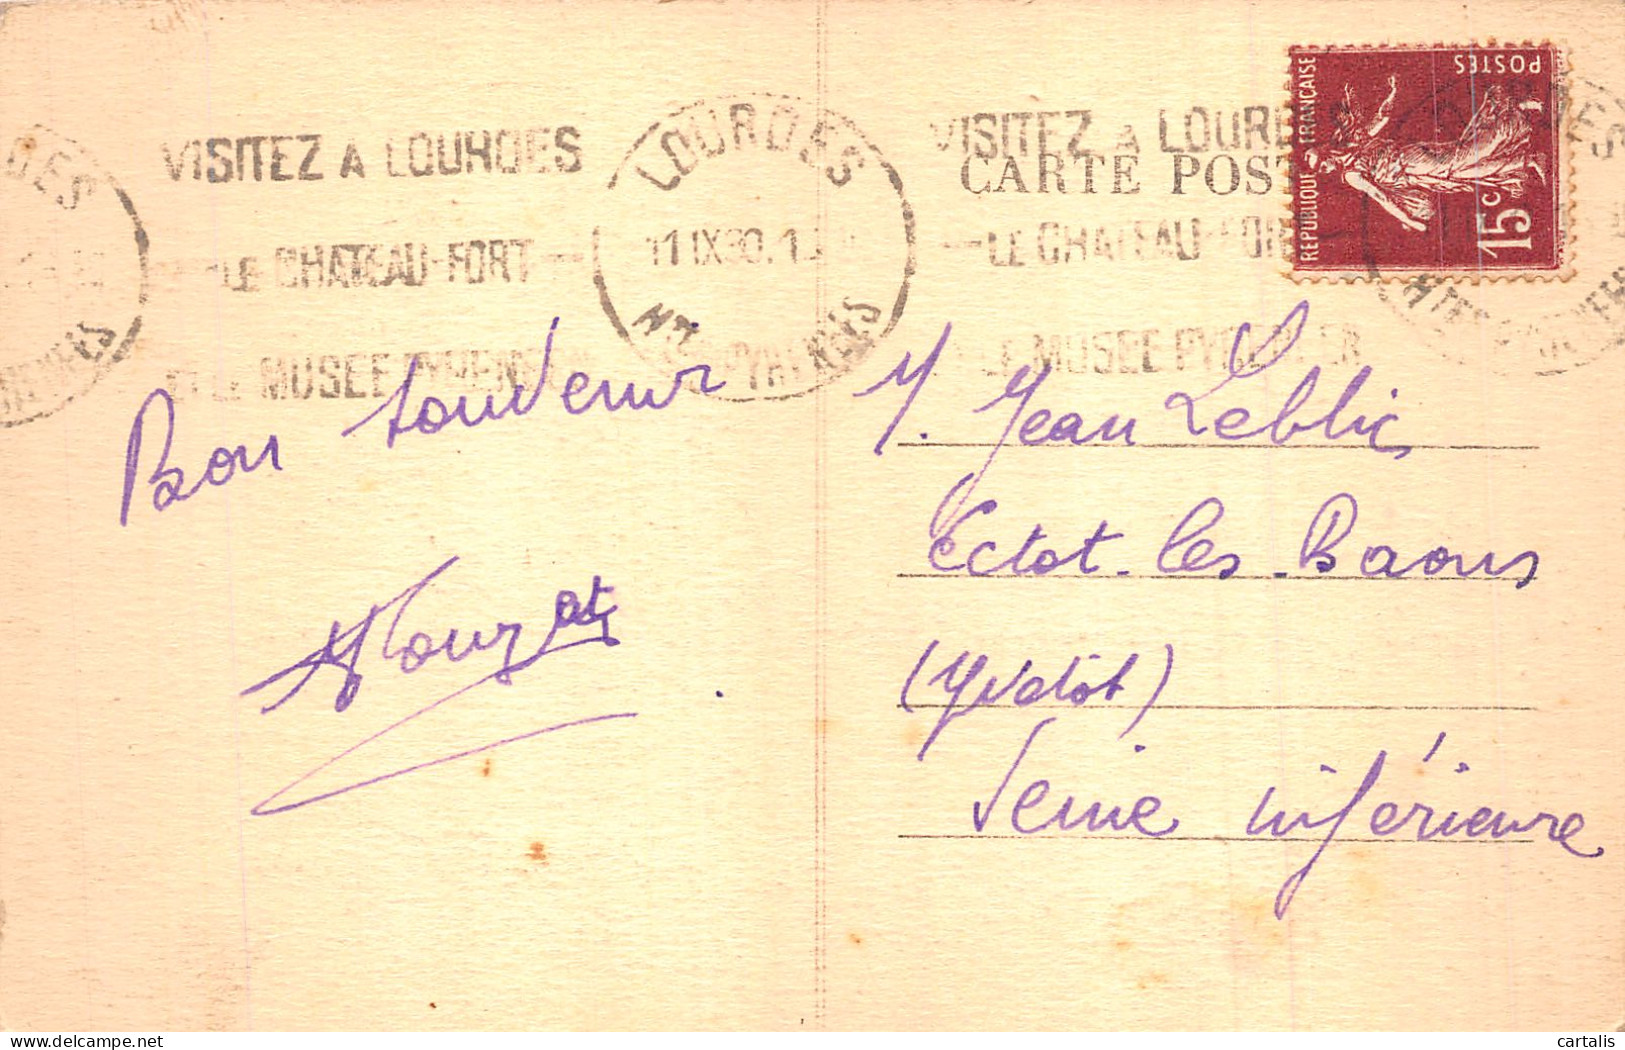 VISITEZ A LOURDES
LE CHATEAU-FORT
ET LE MUSEE PYRENEEN
LOURDES
11 IX 30
HTES PYRENEES
VISITEZ A LOURDES
LE CHATEAU-FORT
LE MUSEE PYRENEEN
CARTE POST
REPUBLIQUE FRANÇAISE
POSTES
15c
Bon souvenir
M. Jean Leblic
Ectot-les-Baons
(Yvetot)
Seine inférieure
cartalis